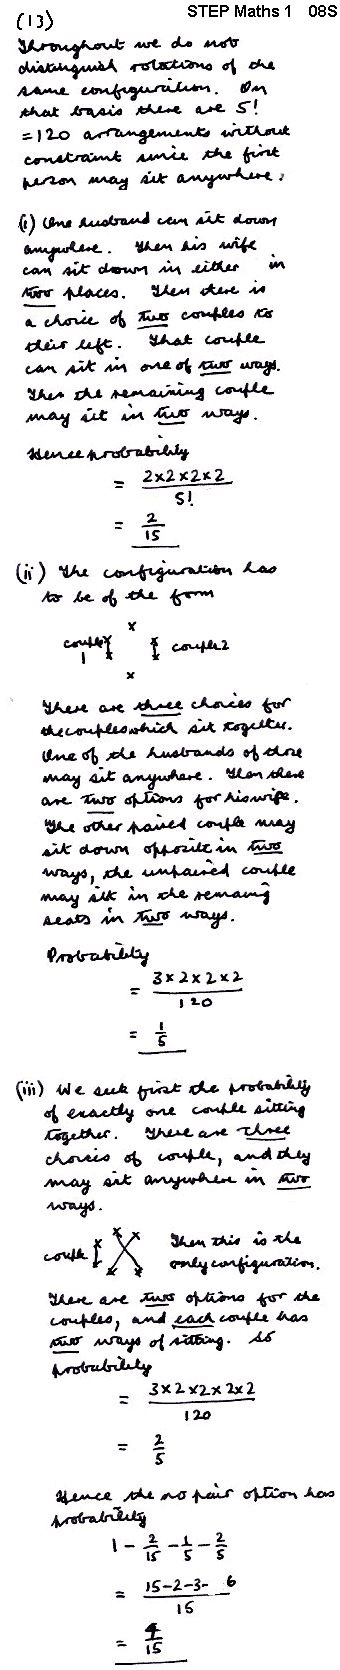 STEP Maths 1 08S
(13)
Throughout we do not
distinguish rotations of the
same configuration. On
that basis there are 5!
=120 arrangements without
constraint since the first
person may sit anywhere.
(i) One husband can sit down
anywhere. Then his wife
can sit down in either in
two places. Then there is
a choice of two couples to
their left. That couple
can sit in one of two ways.
Then the remaining couple
may sit in two ways.
Hence probability
= 2×2×2×2
5!
= 2
15
(ii) The configuration has
to be of the form
×
couple × × couple2
1 × ×
×
There are three choices for
the couples which sit together.
One of the husbands of those
may sit anywhere. Then there
are two options for his wife.
The other paired couple may
sit down opposite in two
ways, the unpaired couple
may sit in the remaing
seats in two ways.
Probability
= 3×2×2×2
120
= 1
5
(iii) We seek first the probability
of exactly one couple sitting
together. There are three
choices of couple, and they
may sit anywhere in two
ways.
couple Then this is the
only configuration.
There are two options for the
couples, and each couple has
two ways of sitting. So
probability
= 3×2×2×2×2
120
= 2
5
Hence the no pair option has
probability
1 - 2/15 - 1/5 - 2/5
= 15-2-3- 6
15
= 4
15